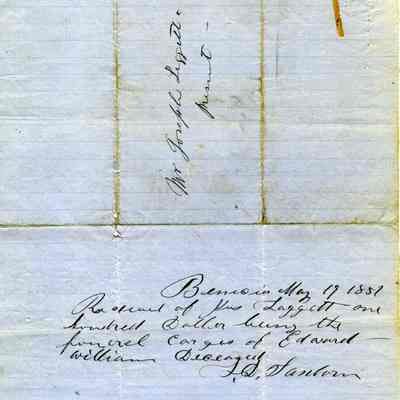 Mr Joseph Leggett
Present
Benicia May 19 1881
Received of Jos Laggett one
hundred Doller being the
funerel Carges of Edward
William Deceaced
Sanborn